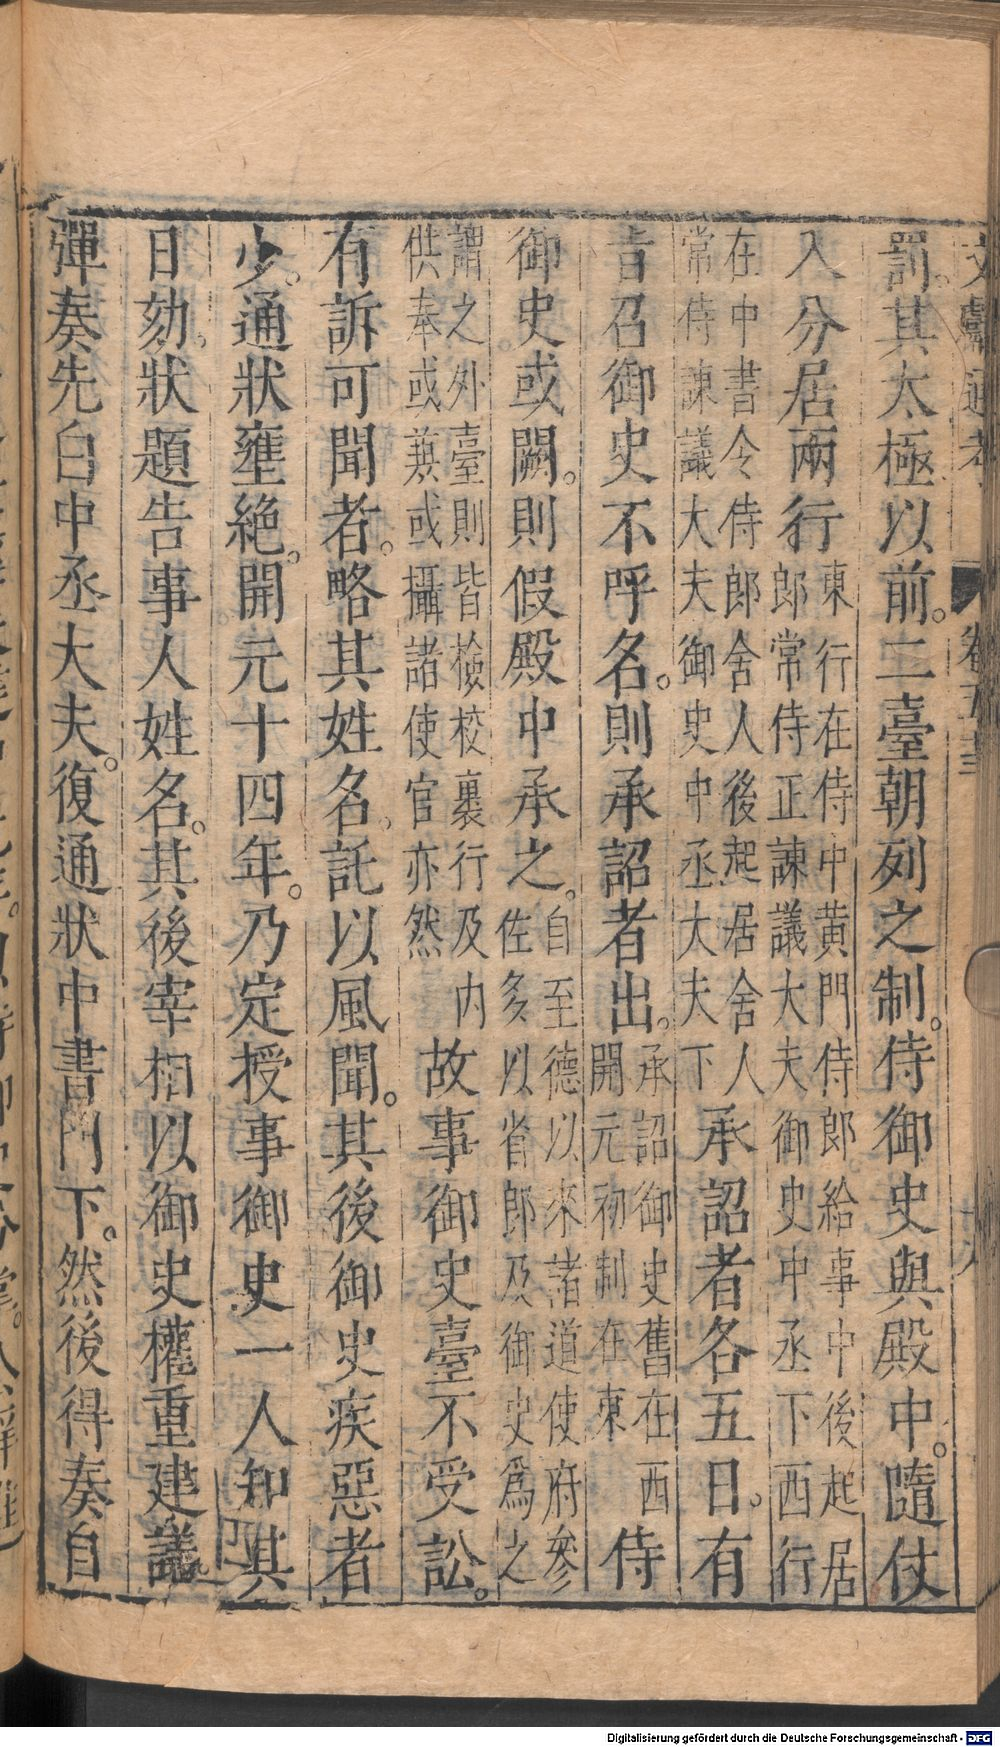 文獻通考 卷五十三
罰。其太極以前。二臺朝列之制。侍御史與殿中。隨仗
入分居兩行東行在侍中黃門侍郎給事中後起居郎常侍正諫議大夫御史中丞下西行
在中書令侍郎舍人後起居舍人常侍諫議大夫御史中丞大夫下承詔者各五日。有
旨召御史不呼名。則承詔者出。承詔御史舊在西開元初制在東侍
御史或闕。則假殿中承之。自至德以來諸道使府參佐多以省郎及御史為之
謂之外臺則皆檢校裏行及内供奉或兼或攝諸使官亦然故事御史臺不受訟。
有訴可聞者。略其姓名。託以風聞。其後御史疾惡者
少。通狀壅絶。開元十四年。乃定授事御史一人知其
日劾。狀題告事人姓名。其後宰相以御史權重建議
彈奏先白中丞大夫。復通狀中書門下。然後得奏自
Digitalisierung gefördert durch die Deutsche Forschungsgemeinschaft - DFG